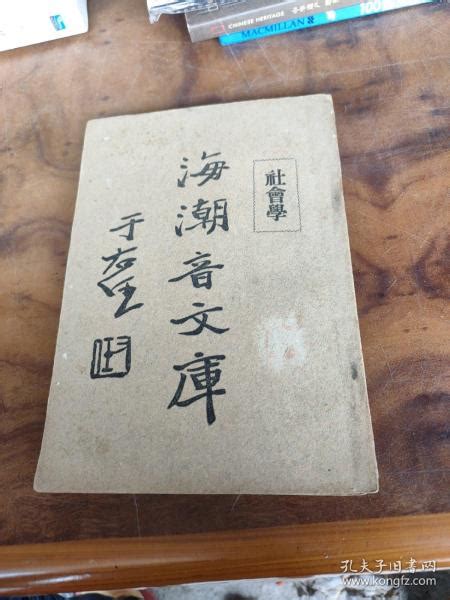 CHINESE HERITAGE
MACMILLAN
100
社會學
海潮音文庫
于右任
孔夫子旧书网
www.kongfz.com